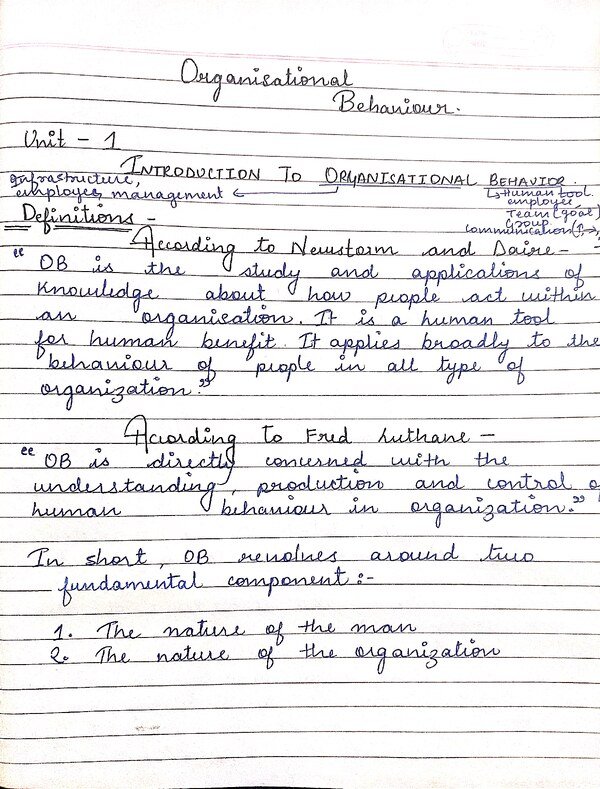 Organisational
Behaviour.
Unit - 1
INTRODUCTION TO ORGANISATIONAL BEHAVIOR.
Infrastructure,
employee, management ←
↳ Human tool
employee
Team (goal)
Group
Communication (↑→)
Definitions -
According to Newstorm and Daire -
"OB is the study and applications of
knowledge about how people act within
an organisation. It is a human tool
for human benefit. It applies broadly to the
behaviour of people in all type of
organization."
According to Fred Luthane -
"OB is directly concerned with the
understanding, production and control o
human behaviour in organization."
In short, OB revolves around two
fundamental component :-
1. The nature of the man
2. The nature of the organization